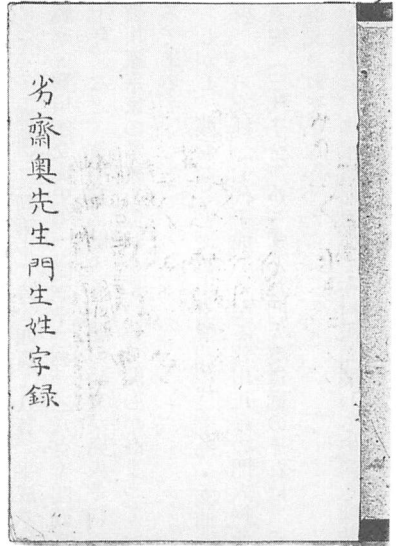 劣齋奥先生門生姓字録